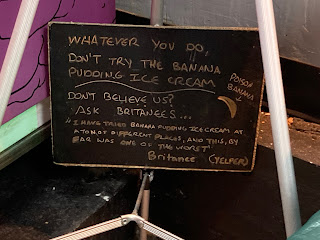 WHATEVER YOU DO,
DON'T TRY THE BANANA
PUDDING ICE CREAM
POISON
BANANA
DON'T BELIEVE US?
ASK BRITANEES...
"I HAVE TRIED BANANA PUDDING ICE CREAM AT
A TON OF DIFFERENT PLACES, AND THIS, BY
FAR WAS ONE OF THE WORST"
Britanee (YELPER)